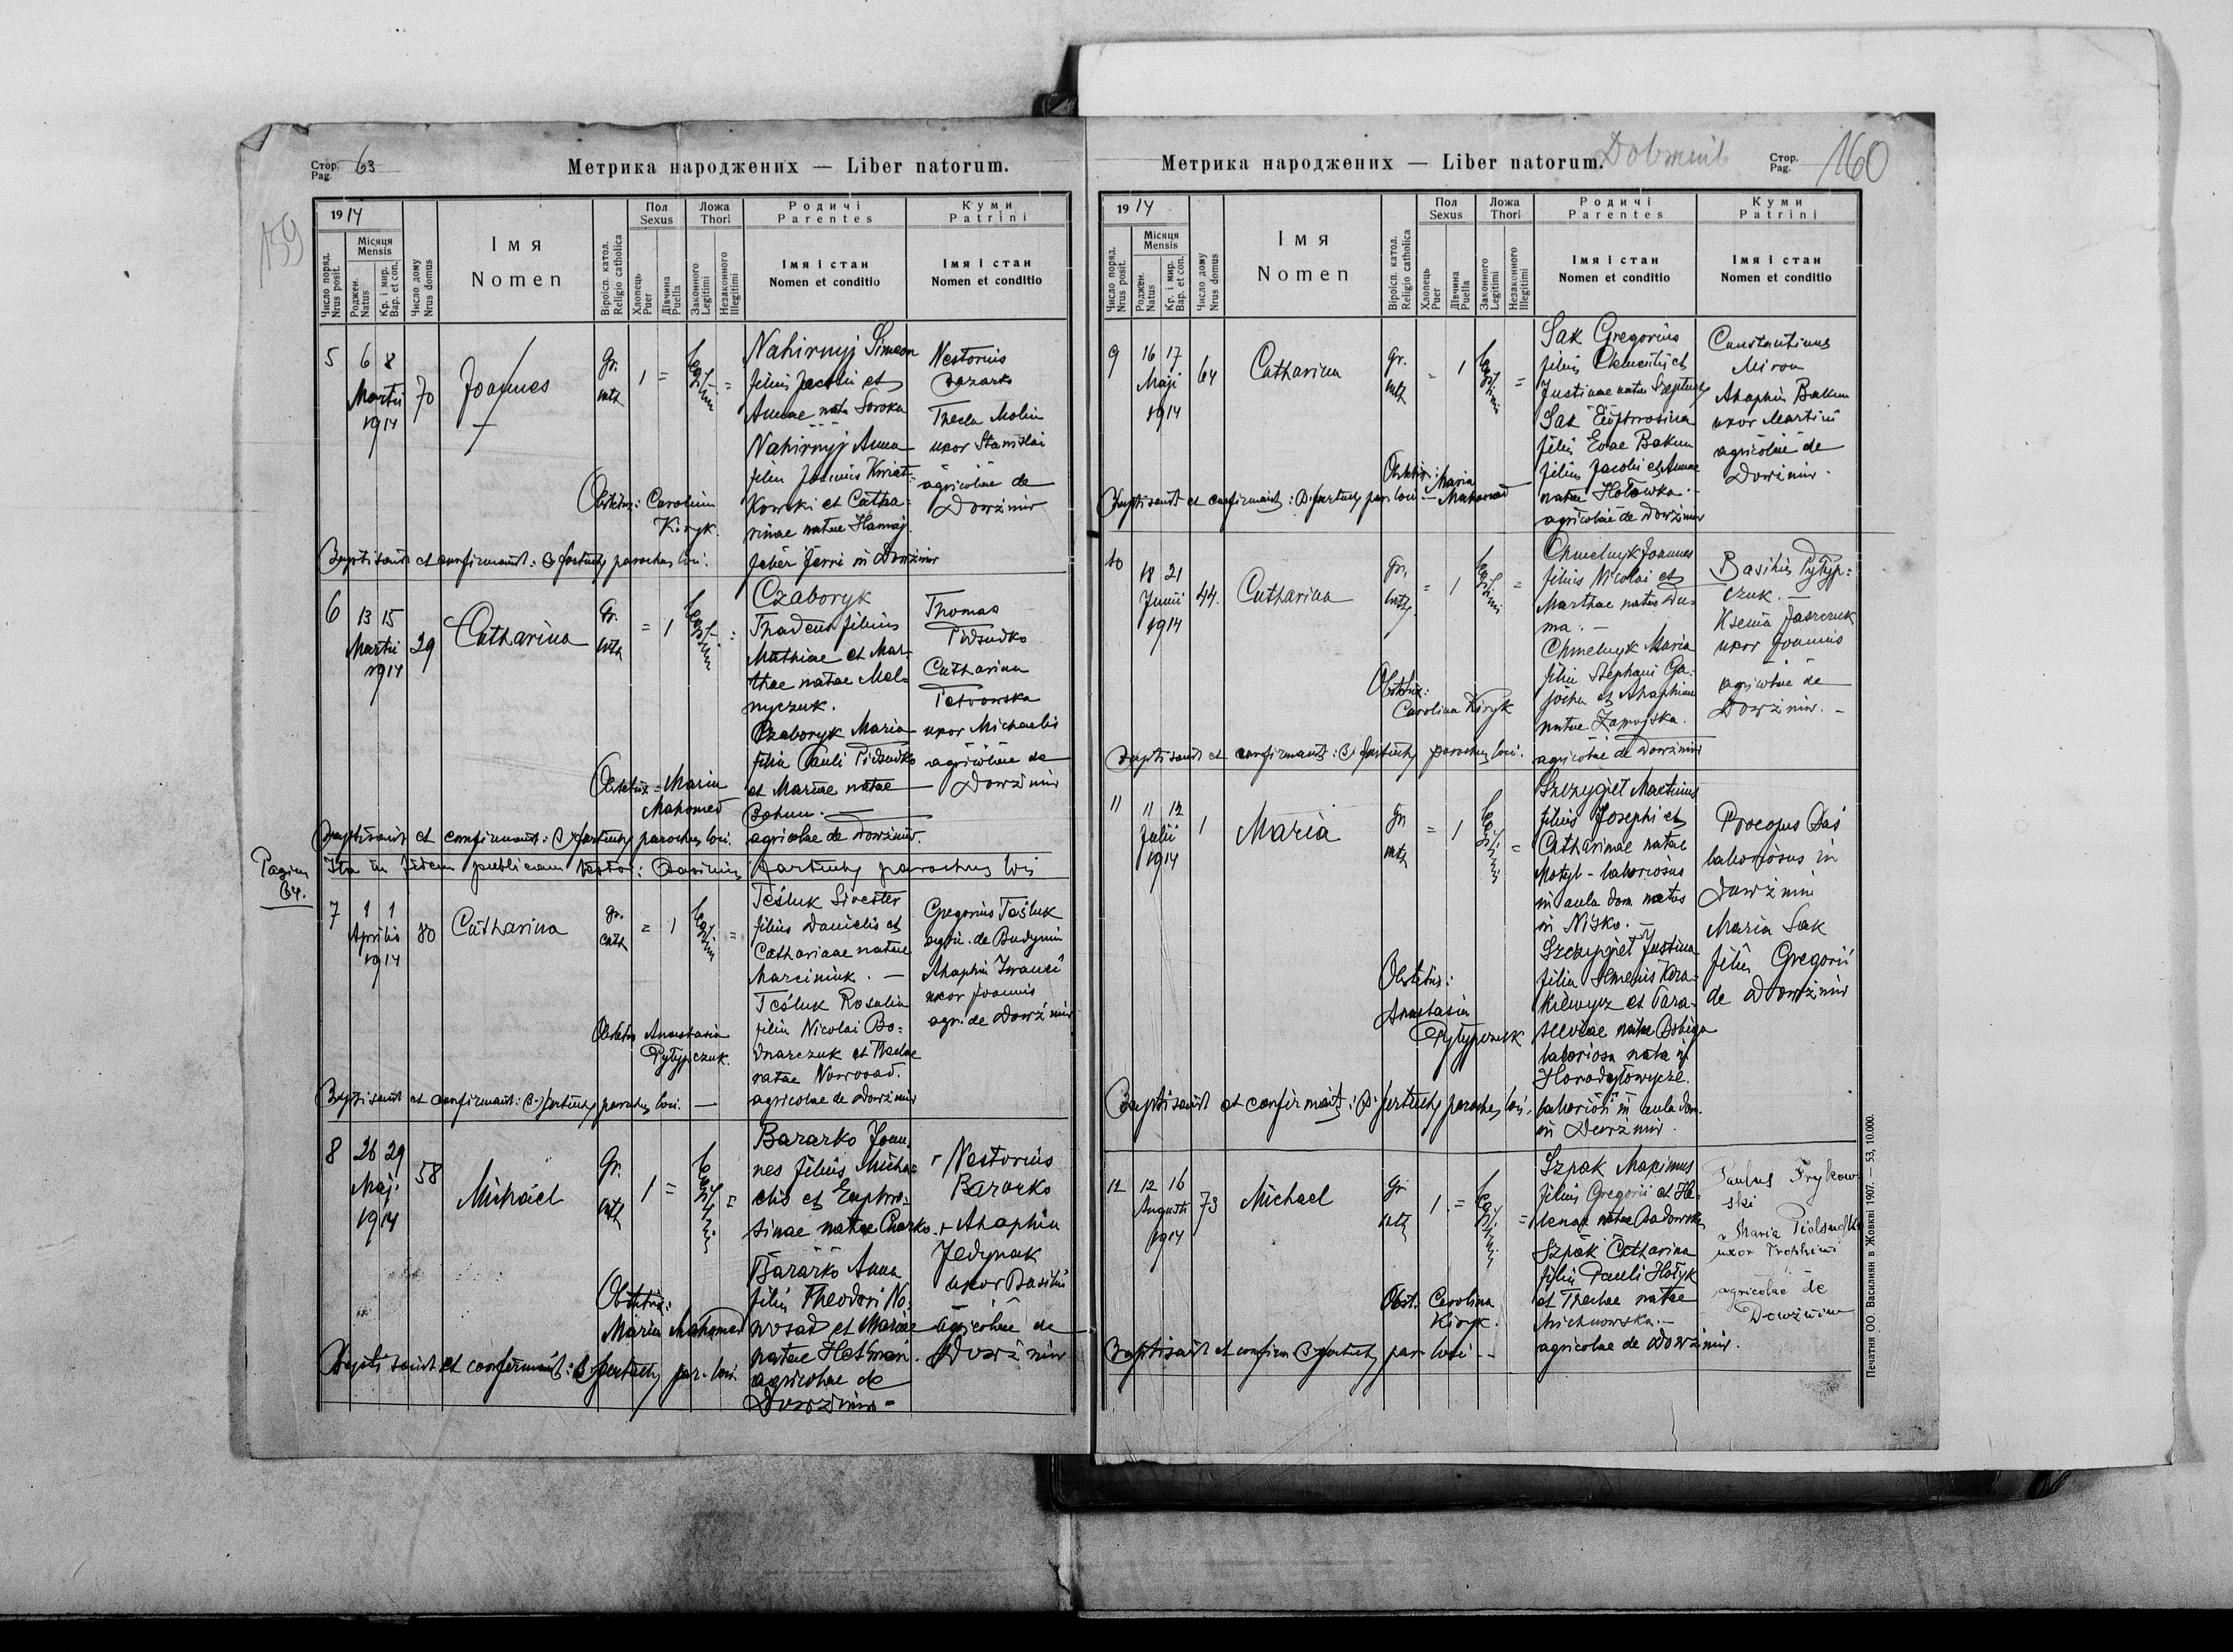 Стор. Pag. 63
Метрика народжених — Liber natorum.
159
19 14
Місяця
Mensis
Число поряд.
Nrus posit.
Роджен.
Natus
Кр. і мир.
Bap. et con.
Число дому
Nrus domus
Імя
Nomen
Віроісп. катол.
Religio catholica
Пол
Sexus
Хлопець
Puer
Дівчина
Puella
Ложа
Thori
Законного
Legitimi
Незаконного
Illegitimi
Родичі
Parentes
Імя і стан
Nomen et conditio
Куми
Patrini
Імя і стан
Nomen et conditio
5
6 8
Martii
1914
70
Joannes
Gr.
cath
1 =
Legitimi
=
Nahirnyj Simeon
filius Jacobi et
Annae nata Soroka
Nahirnyj Anna
filia Joannis Kwiat=
kowski et Catha=
rinae natae Hamaj.
faber ferri in Dowżniw
Nestorius
Bazarko
Thecla Molin
uxor Stanislai
agricolae de
Dowżniw
Obstetrix: Carolina
Kiryk.
Baptisavit et confirmavit: B. parochus loci.
6
13 15
Martii
1914
29
Catharina
Gr.
cath
= 1
Legitimi
=
Czaboryk
Thadeus filius
Mathiae et Mar-
thae natae Mel=
nyczuk.
Czaboryk Maria
filia Pauli Pidsudko
et Mariae natae
agricolae de Dowżniw.
Thomas
Pidsudko
Catharina
uxor Michaelis
agricolae de
Dowżniw
Obstetrix = Maria
Mahomed
Baptisavit et confirmavit: B. parochus loci.
Ita in fidem publicam testor: Basilius parochus loci
Pagina
64.
7
1 1
Aprilis
1914
80
Catharina
gr.
cath
= 1
Legitimi
=
Teśluk Silvester
filius Danielis et
Catharinae natae
Marciniuk. —
Teśluk Rosalia
filia Nicolai Bo=
dnarczuk et Theclae
natae Nowosad.
agricolae de Dowżniw
Gregorius Teśluk
agric. de Budynin
Ahaphia Iwanec
uxor Joannis
agr. de Dowżniw
Obstetrix Anastasia
Pytypczuk.
Baptisavit et confirmavit: B. parochus loci. —
8
26 29
Maj.
1914
58
Michael
Gr.
cath
1 =
Legitimi
=
Bazarko Joan=
nes filius Micha=
elis et Euphro=
sinae natae
Bazarko Anna
filia Theodori No=
wosad et Mariae
natae Hetman.
agricolae de
Dowżniw -
Nestorius
Bazarko
+ Ahaphia
Jedynak
uxor Basilii
agricolae de
Dowżniw
Obstetrix:
Maria Mahomed
Baptisavit et confirmavit: B. par. loci.
Метрика народжених — Liber natorum.
Dobmuib
Стор. Pag. 160
19 14
Місяця
Mensis
Число поряд.
Nrus posit.
Роджен.
Natus
Кр. і мир.
Bap. et con.
Число дому
Nrus domus
Імя
Nomen
Віроісп. катол.
Religio catholica
Пол
Sexus
Хлопець
Puer
Дівчина
Puella
Ложа
Thori
Законного
Legitimi
Незаконного
Illegitimi
Родичі
Parentes
Імя і стан
Nomen et conditio
Куми
Patrini
Імя і стан
Nomen et conditio
9
16 17
Maji
1914
64
Catharina
Gr.
cath
= 1
Legitimi
=
Sak Gregorius
filius Clementis et
Justinae natae Szeptuch
Sak Euphrosina
filia Evae Bakun
filia Jacobi et Annae
natae Hołowka.
agricolae de Dowżniw
Constantinus
Miron
Ahaphia Bakun
uxor Martini
agricolae de
Dowżniw.
Obstetrix: Maria
Mahomed
Baptisavit et confirmavit: B. par. loci. —
10
18 21
Junii
1914
44.
Catharina
Gr.
cath
= 1
Legitimi
=
Chmelnyk Joannes
filius Nicolai et
Marthae natae Du=
ma. —
Chmelnyk Maria
filia Stephani Ga=
et Ahaphiae
natae Zamojska.
agricolae de Dowżniw
Basilius Pytyp=
czuk. —
Ksenia Jaszczuk
uxor Joannis
agricolae de
Dowżniw. —
Obstetrix:
Carolina Kiryk
Baptisavit et confirmavit: B. parochus loci.
11
11 12
Julii
1914
1
Maria
Gr.
cath
= 1
Legitimi
=
Szczygieł Martinus
filius Josephi et
Catharinae natae
Motyl - laboriosus
in aula dom. natus
in Nisko. —
Szczygieł Justina
filia
et Para=
scevae natae
laboriosa nata in
laboriosi in aula dom.
in Dowżniw.
Procopus Baś
laboriosus in
Dowżniw
Maria Sak
filia Gregorii
de Dowżniw
Obstetrix:
Anastasia
Pytypczuk
Baptisavit et confirmavit: B. parochus loci.
12
12 16
Augusti
1914
73
Michael
Gr
cath
1. =
Legitimi
=
Szpak Maximus
filius Gregorii et He=
lenae natae Sadowska
Szpak Catharina
filia Pauli Hołyk
et Theclae natae
Michnowska. —
agricolae de Dowżniw.
Paulus Frykow=
ski
Maria Pidsudko
uxor Trophimi
agricolae de
Dowżniw
Obst. Carolina
Kiryk.
Baptisavit et confirm. B. par. loci - -
Печатня ОО. Василиян в Жовкві 1907. — 53, 10.000.